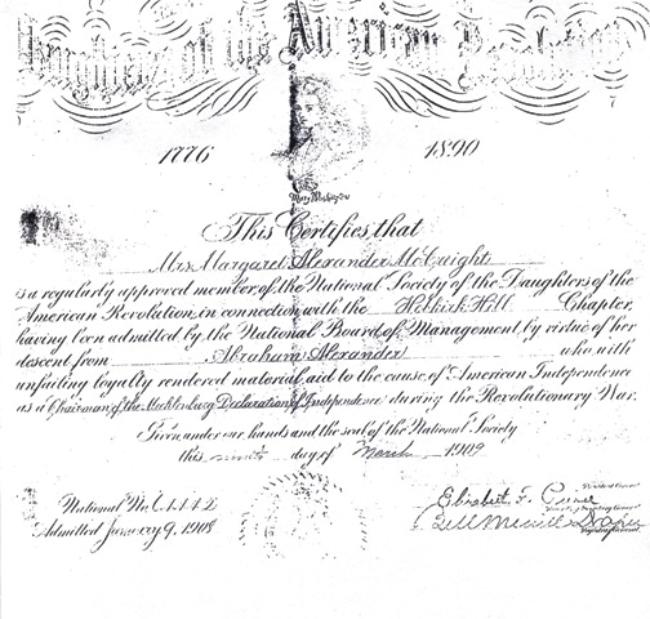 Daughters of the American Revolution
1776 1890
Mary Washington
This Certifies that
Mrs. Margaret Alexander McCuight
is a regularly approved member of the National Society of the Daughters of the
American Revolution, in connection with the Hobkirk Hill Chapter,
having been admitted by the National Board of Management by virtue of her
descent from Abraham Alexander who with
unfailing loyalty rendered material aid to the cause of American Independence
as a Chairman of the Mecklenburg Declaration of Independence during the Revolutionary War.
Given under our hands and the seal of the National Society
this day of March 1909
National No.
Admitted January 9, 1908
Elisabeth F. Pierce
Bell Merrill Draper